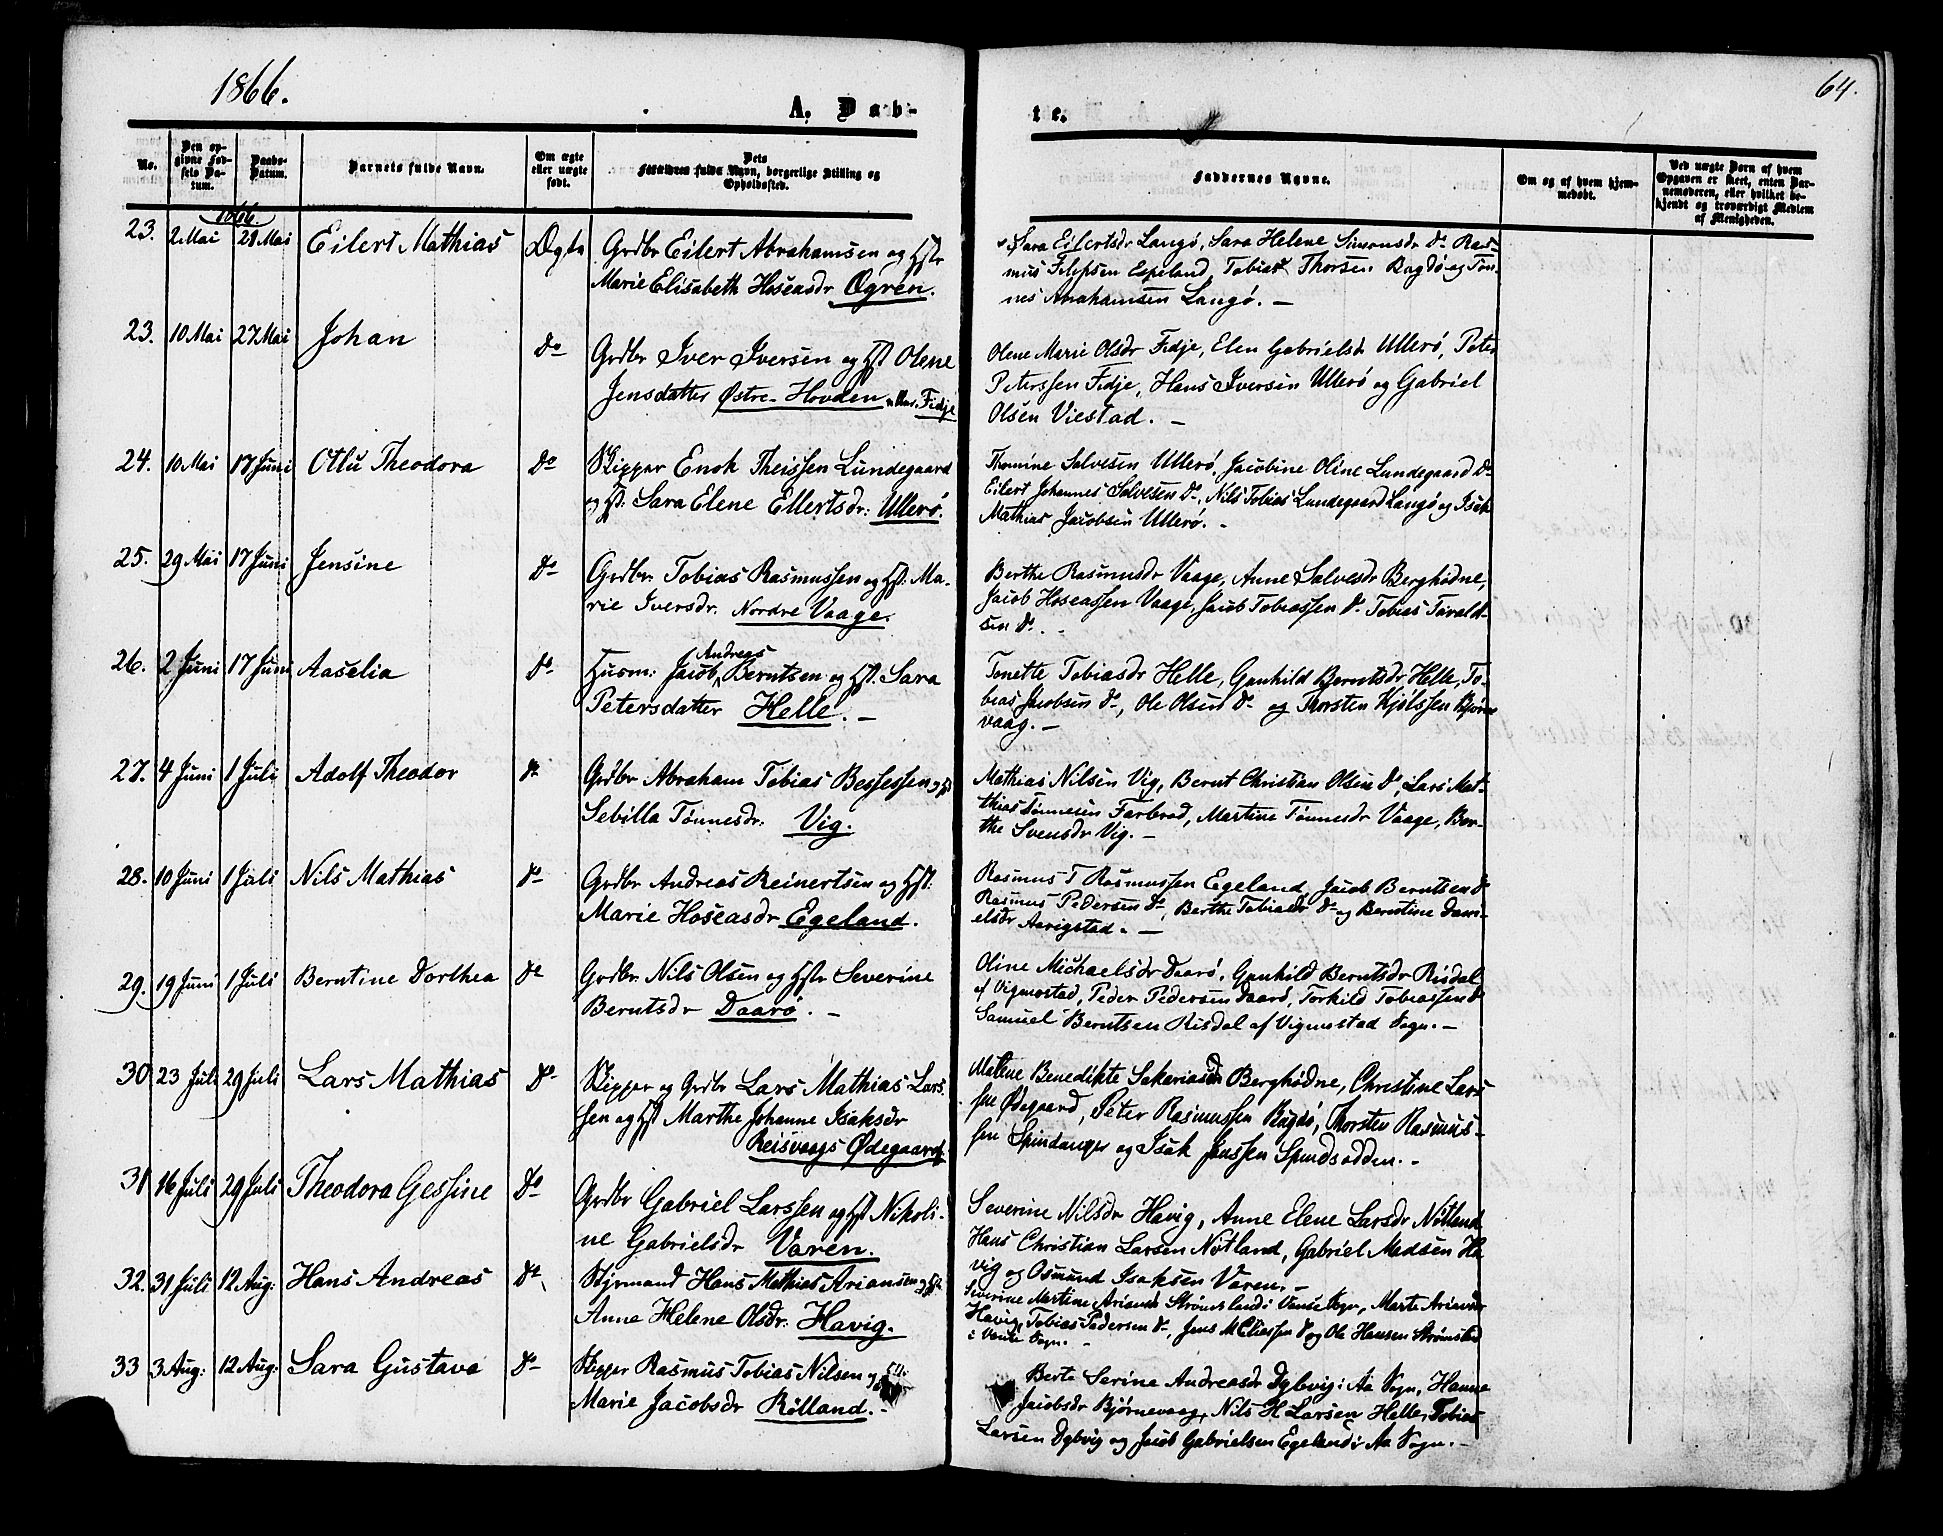 1866.
64.
A. Døb-
te.
No.
Den op-
givne Fød-
sels Da-
tum.
Daabs-
Datum.
Barnets fulde Navn.
Om ægte
eller uægte
født.
Dets
Forældres fulde Navn, borgerlige Stilling og
Opholdssted.
Faddernes Navne.
Om og af hvem hjem-
medøbt.
Ved uægte Børn af hvem
Opgaven er skeet, enten Bar-
nemoderen, eller hvilket be-
kjendt og troværdigt Medlem
af Menigheden.
1866
23. 2 Mai 21 Mai Eilert Mathias Ægte
Grdbr Eilert Abrahamsen og Hstr
Marie Elisabeth Hoseasdr Øgren.
Sara Eilertsdr Langø, Sara Helene Simonsdr Do Ras-
mus Filipsen Espeland, Tobias Thorsen Ragdø og Tøn-
nes Abrahamsen Langø. —
23. 10 Mai 27 Mai Johan Do
Grdbr Iver Iversen og Hst Olene
Jensdatter Østre-Hovden Fidje
Olene Marie Olsdr Fidje, Elen Gabrielsdr Ullerø, Peter
Peterssen Fidje, Hans Iversen Ullerø og Gabriel
Olsen Viestad. —
24. 10 Mai 17 Juni Theodora Do
Skipper Enok Theissen Lundegaard
og Hst: Sara Elene Ellertsdr: Ullerø.
Thomine Salvesen Ullerø, Jacobine Oline Lundegaard Do
Eilert Johannes Salvesen Do, Nils Tobias Lundegaard Langø og Isak
Mathias Jacobsen Ullerø. —
25. 29 Mai 17 Juni Jensine Do
Grdbr. Tobias Rasmussen og Hst: Ma-
rie Iversdr. Nordre Vaage.
Berthe Rasmusdr Vaage, Anne Salvesdr Berghødne,
Jacob Hoseassen Vaage, Jacob Tobiassen Do Tobias Tarald-
sen Do. —
26. 2 Juni 17 Juni Aaselia Do
Husm: Jacob Andreas Berntsen og Hst. Sara
Petersdatter Helle. —
Tonette Tobiasdr Helle, Gunhild Berntsdr Helle, To-
bias Jacobsen Do, Ole Olsen Do og Thorsten Kjølssen Bjørne
vaag. —
27. 4 Juni 1 Juli Adolf Theodor Do
Grdbr Abraham Tobias Bessessen og Hst
Sebilla Tønnesdr. Vig.
Mathias Nilsen Vig, Bernt Christian Olsen Do, Lars Mat-
thias Tønnesen Farbrod, Martine Tønnesdr Vaage, Ber-
the Svensdr Vig. —
28. 10 Juni 1 Juli Nils Mathias Do
Grdbr Andreas Reinertsen og Hst:
Marie Hoseasdr Egeland.
Rasmus T Rasmussen Egeland, Jacob Berntsen Do
Rasmus Pedersen Do, Berthe Tobiasdr Do og Berntine Dani-
elsdr Aarigstad. —
29. 19 Juni 1 Juli Berntine Dorthea Do
Grdbr. Nils Olsen og Hstr Severine
Berntsdr Daarø. —
Oline Michaelsdr Daarø, Gunhild Berntsdr Risdal
af Vigmostad, Peder Pedersen Daarø, Torkild Tobiassen Do
Samuel Berntsen Risdal af Vigmostad Sogn. —
30 23 Juli 29 Juli Lars Mathias Do
Skipper og Grdbr Lars Mathias Lars-
sen og Hst Marthe Johanne Isaksdr
Reisvaags Ødegaard.
Malene Benedikte Sakariasdr Berghødne, Christine Lars-
sen Ødegaard, Peter Rasmussen Ragdø, Thorsten Rasmus-
sen Spindanger og Isak Jenssen Spindsodden. —
31 16 Juli 29 Juli Theodora Gessine Do
Grdbr Gabriel Larssen og Hst Nikoli-
ne Gabrielsdr Varen.
Severine Nilsdr Havig, Anne Elene Larsdr Nøtland
Hans Christian Larsen Nøtland, Gabriel Madsen Ha
vig og Osmund Isaksen Varen. —
32. 31 Juli 12 Aug: Hans Andreas Do
Styrmand Hans Mathias Ariansen og Hstr
Anna Helene Olsdr: Havig.
Severine Martine Ariansdr Strømsland i Vanse Sogn, Marte Ariansdr
Havig, Tobias Pedersen Do, Jens M Eliassen Do og Ole Hansen Strømsland
i Vanse Sogn. —
33 3 Aug: 12 Aug: Sara Gustava Do
Skipper Rasmus Tobias Nilsen og Hst:
Marie Jacobsdr Rölland. —
Berte Serine Andreasdr Dybvig i Aa Sogn, Hanne
Jacobsdr Bjørnevaag, Nils H Larsen Helle, Tobias
Larsen Dybvig og Jacob Gabrielsen Egeland i Aa Sogn. —